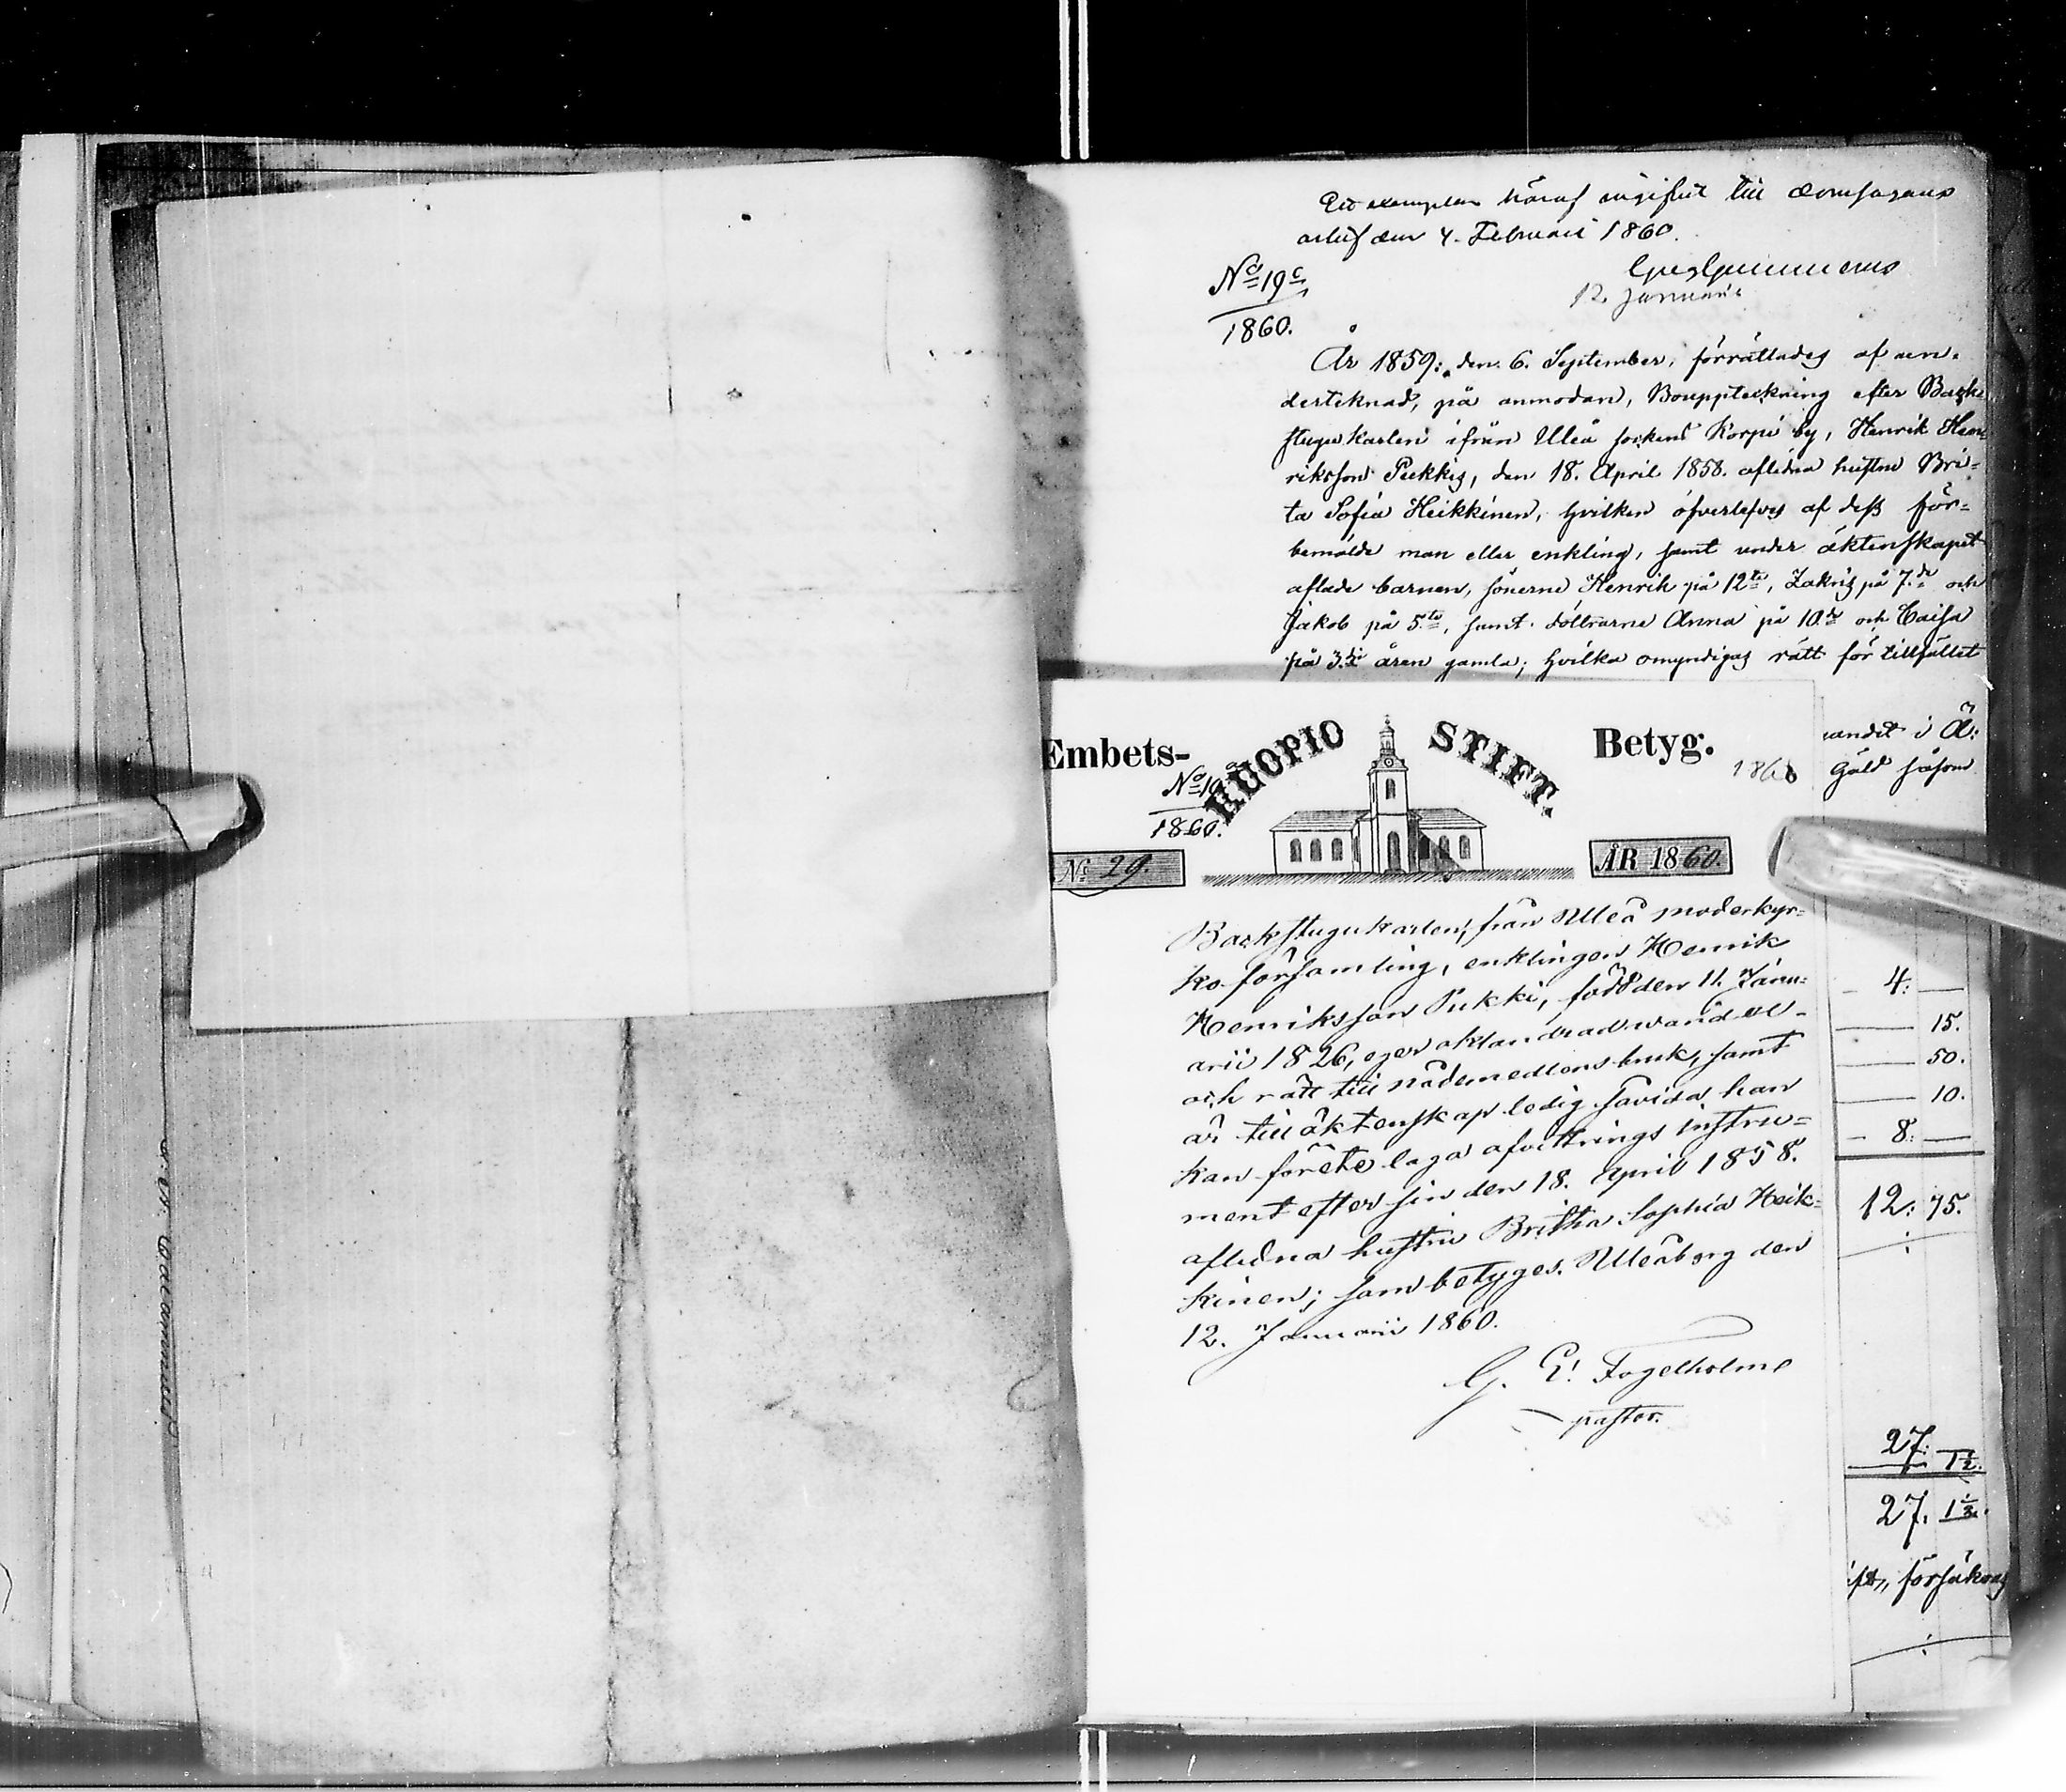 Ett exemplar häraf ingifvit till Domhafvans
arkif den 4. Februari 1860.
12. Januarii
No 19c
1860.
År 1859: den 6. September, förrättades af un-
derteknad, på anmodan, Bouppteckning efter Back-
stugukarlen ifrån Uleå sockens Korpi by, Henrik Hen-
riksson Pukkis, den 18. April 1858. aflidna hustru Bri-
ta Sofia Heikkinen, hvilken öfverlefves af dess för-
bemälde man eller enkling, samt under äktenskapet
aflade barnen, sönerne Henrik på 12te, Zakris på 7de och
Jakob på 5te, samt döttrarne Anna på 10de och Caisa
på 3dje åren gamla; hvilka omyndigas rätt för tillfället
Embets- KUOPIO STIFT. Betyg.
1860
No 19
1860.
No 29.
ÅR 1860.
Backstugukarlen, från Uleå moderkyr-
ko församling, enklingen Henrik
Henriksson Pukki, född den 11. Janu-
arii 1826, eger oklandrad wandel
och rätt till nådemedlens bruk, samt
är till äktenskap ledig såvida han
kan förete laga afvittrings instru-
ment efter sin den 18. April 1858.
aflidna hustru Britha Sophia Heik-
kinen; som betyges. Uleåborg den
12. Januarii 1860.
G. E. Fogelholm
pastor.
vandet i Å:
Gäld såsom
4: —
— 15.
— 50.
— 10.
8: —
12: 75.
27: 1½.
27. 1½.
försäkras